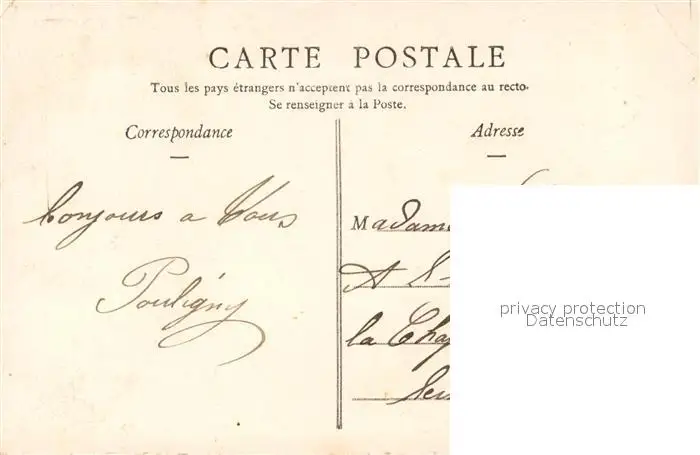 CARTE POSTALE
Tous les pays étrangers n'acceptent pas la correspondance au recto.
Se renseigner à la Poste.
Correspondance
Bonjours a Vous
Pouligny
Adresse
Madame
A
la
privacy protection
Datenschutz